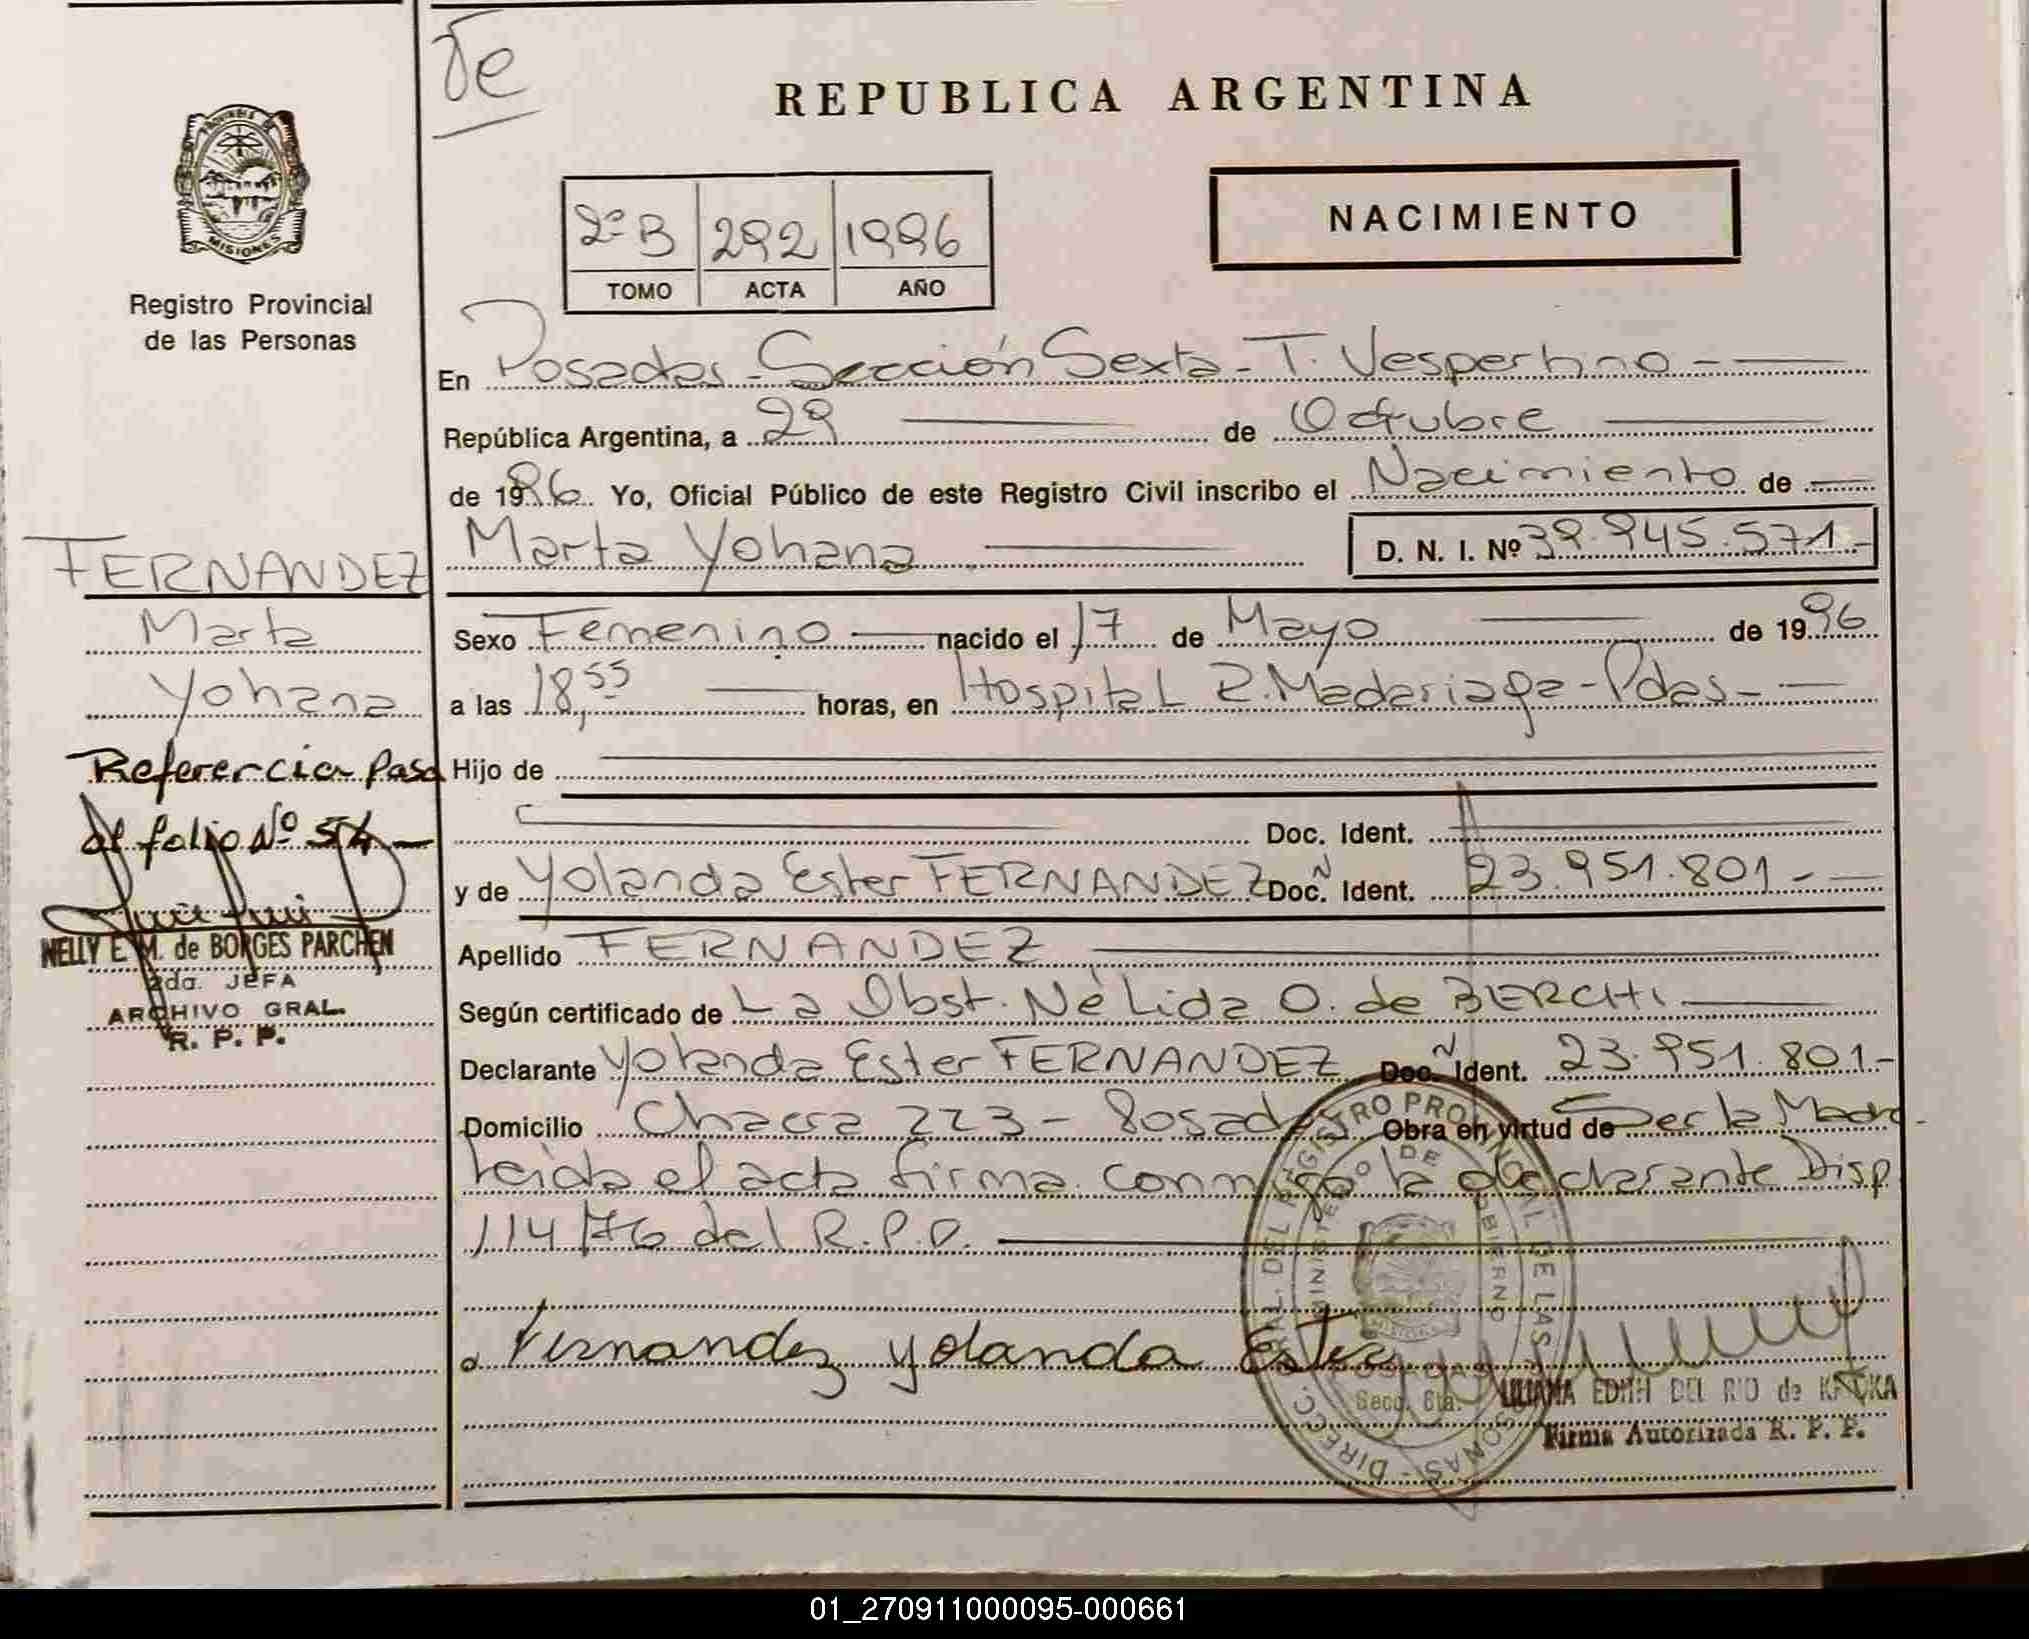 de
REPUBLICA ARGENTINA
PROVINCIA DE
MISIONES
2º B 292 1996
TOMO ACTA AÑO
NACIMIENTO
Registro Provincial
de las Personas
En Posadas - Sección Sexta - T. Vespertino -
República Argentina, a 29 de Octubre
de 1996 Yo, Oficial Público de este Registro Civil inscribo el Nacimiento de
Marta Yohana D. N. I. Nº 39.945.571-
FERNANDEZ
Marta
Yohana
Sexo Femenino nacido el 17 de Mayo de 1996
a las 18,55 horas, en Hospital R. Madariaga - Pdas -
Referencia Pasa
al folio Nº 54 -
Hijo de
Doc. Ident.
y de Yolanda Ester FERNANDEZ Doc. N Ident. 23.951.801 -
NELLY E. M. de BORGES PARCHEN
2da. JEFA
ARCHIVO GRAL.
R. P. P.
Apellido FERNANDEZ
Según certificado de La Obst. Nélida O. de BERCHI
Declarante Yolanda Ester FERNANDEZ Doc. N Ident. 23.951.801-
Domicilio Chacra 223 - Posadas Obra en virtud de Ser la Madre
leida el acta firma conmigo la declarante Disp
114/76 del R.P.P.
Fernandez yolanda Ester
DIRECC. GRAL. DEL REGISTRO PROVINCIAL DE LAS PERSONAS -
MINISTERIO DE GOBIERNO
MISIONES
POSADAS
Secc. 6ta.
LILIANA EDITH DEL RIO de KAUKA
Firma Autorizada R. P. P.
01_270911000095-000661